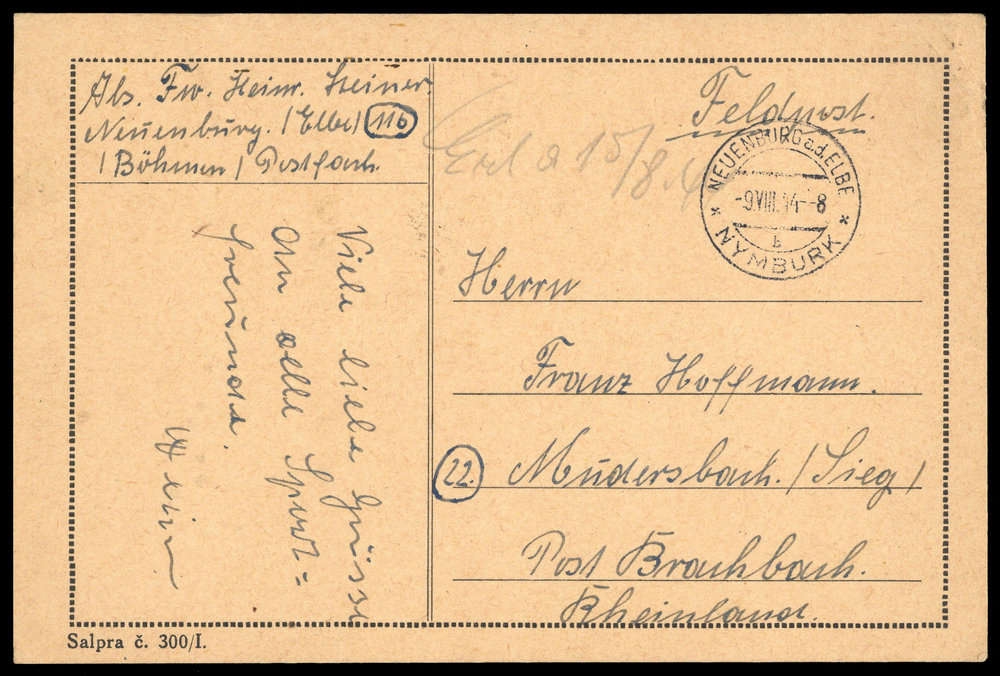 Abs. Fw. Heinr. Steiner
Neuenburg. /Elbe/ 11b
/Böhmen/ Postfach.
Feldpost.
Erh a 15/8.
NEUENBURG a.d. ELBE
-9.VIII.44--8
b
* NYMBURK *
Herrn
Franz Hoffmann.
22. Mudersbach. /Sieg/
Post Brachbach.
Rheinland.
Viele liebe Grüsse
an alle Sport=
freunde.
Hein
Salpra č. 300/I.